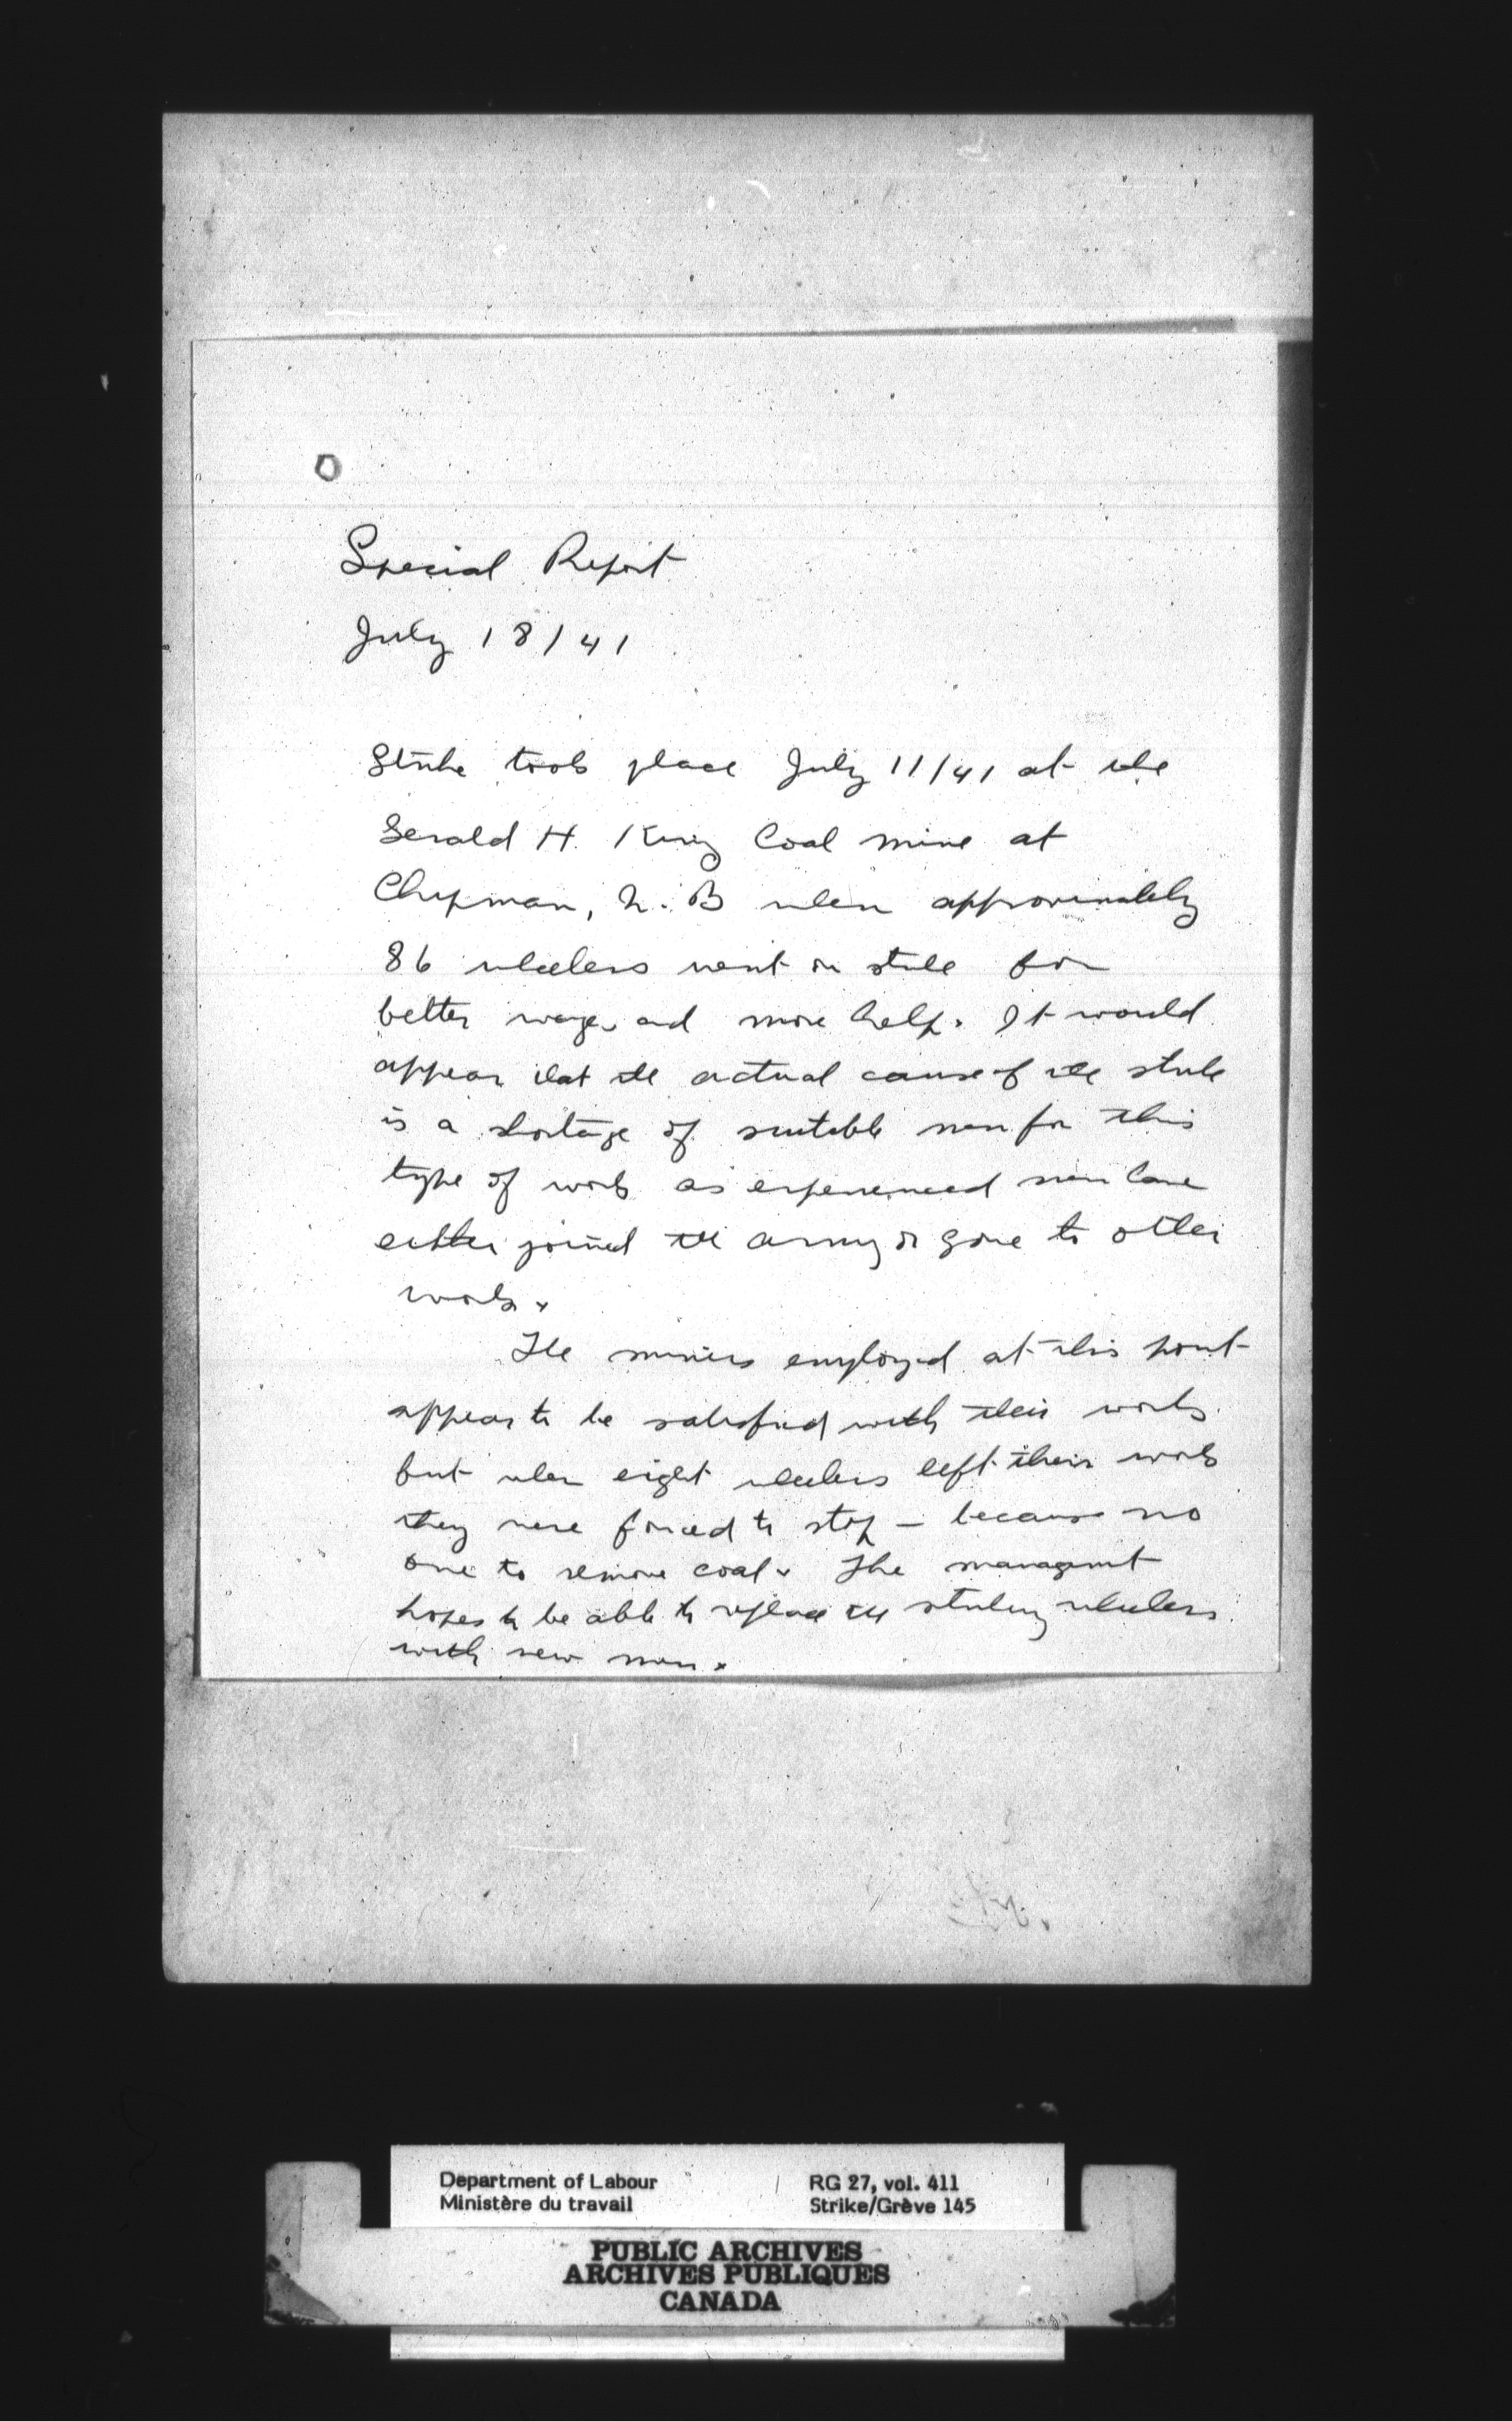 Special Report
July 18/41
Strike took place July 11/41 at the
Gerald H. King Coal mine at
Chipman, N. B when approximately
86 wheelers went on strike for
better wages and more help. It would
appear that the actual cause of the strike
is a shortage of suitable men for this
type of work as experienced men have
either joined the army or gone to other
work.
The miners employed at this point
appear to be satisfied with their work
but when eight wheelers left their work
they were forced to stop - because no
one to remove coal. The management
hopes to be able to replace the striking wheelers
with new men.
Department of Labour
Ministère du travail
RG 27, vol. 411
Strike/Grève 145
PUBLIC ARCHIVES
ARCHIVES PUBLIQUES
CANADA